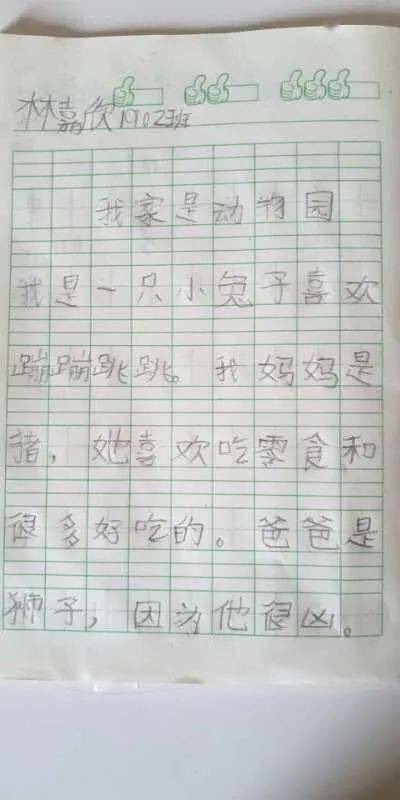 林嘉欣1902班
我家是动物园
我是一只小兔子喜欢
蹦蹦跳跳。我妈妈是
猪,她喜欢吃零食和
很多好吃的。爸爸是
狮子,因为他很凶。